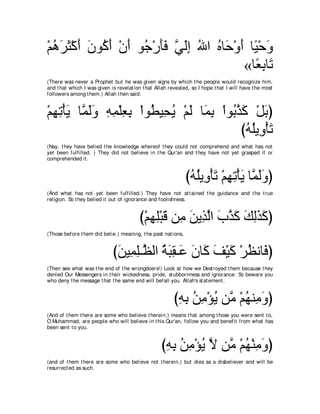 وَحْيًا أَوْحَاهُ اللهُ إِلَيَّ فَأَرْجُو أَنْ أَكُونَ أَكْثَرَهُمْ
تَابِعًا»
(There was never a Prophet but he was given signs by which the people would recognize him, and that which I was given is revelation that Allah revealed, so I hope that I will have the most followers among them.) Allah then said:
(بَلْ كَذَّبُواْ بِمَا لَمْ يُحِيطُواْ بِعِلْمِهِ وَلَمَّا يَأْتِهِمْ
تَأْوِيلُهُ)
(Nay, they have belied the knowledge whereof they could not comprehend and what has not yet been fulfilled. ) They did not believe in the Qur'an and they have not yet grasped it or comprehended it.
(وَلَمَّا يَأْتِهِمْ تَأْوِيلُهُ)
(And what has not yet been fulfilled.) They have not attained the guidance and the true religion. So they belied it out of ignorance and foolishness.
(كَذَلِكَ كَذَّبَ الَّذِينَ مِن قَبْلِهِمْ)
(Those before them did belie.) meaning, the past nations,
(فَانظُرْ كَيْفَ كَانَ عَـقِبَةُ الظَّـلِمِينَ)
(Then see what was the end of the wrongdoers!) Look at how we Destroyed them because they denied Our Messengers in their wickedness, pride, stubbornness and ignorance. So beware you who deny the message that the same end will befall you. Allah's statement,
(وَمِنهُمْ مَّن يُؤْمِنُ بِهِ)
(And of them there are some who believe therein;) means that among those you were sent to, O Muhammad, are people who will believe in this Qur'an, follow you and benefit from what has been sent to you.
(وَمِنْهُمْ مَّن لاَّ يُؤْمِنُ بِهِ)
(and of them there are some who believe not therein,) but dies as a disbeliever and will be resurrected as such.